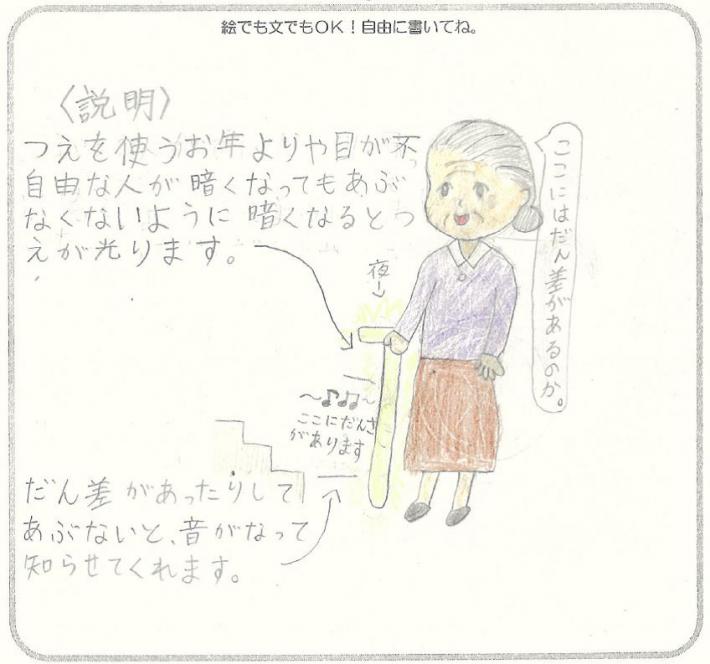 絵でも文でもOK！自由に書いてね。
〈説明〉
つえを使うお年よりや目が不
自由な人が暗くなってもあぶ
なくないように暗くなるとつ
えが光ります。
ここにはだん差があるのか。
夜
〜♪♫〜
ここにだんさ
があります
だん差があったりして
あぶないと、音がなって
知らせてくれます。